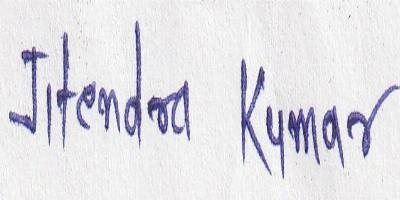 Jitendra Kumar